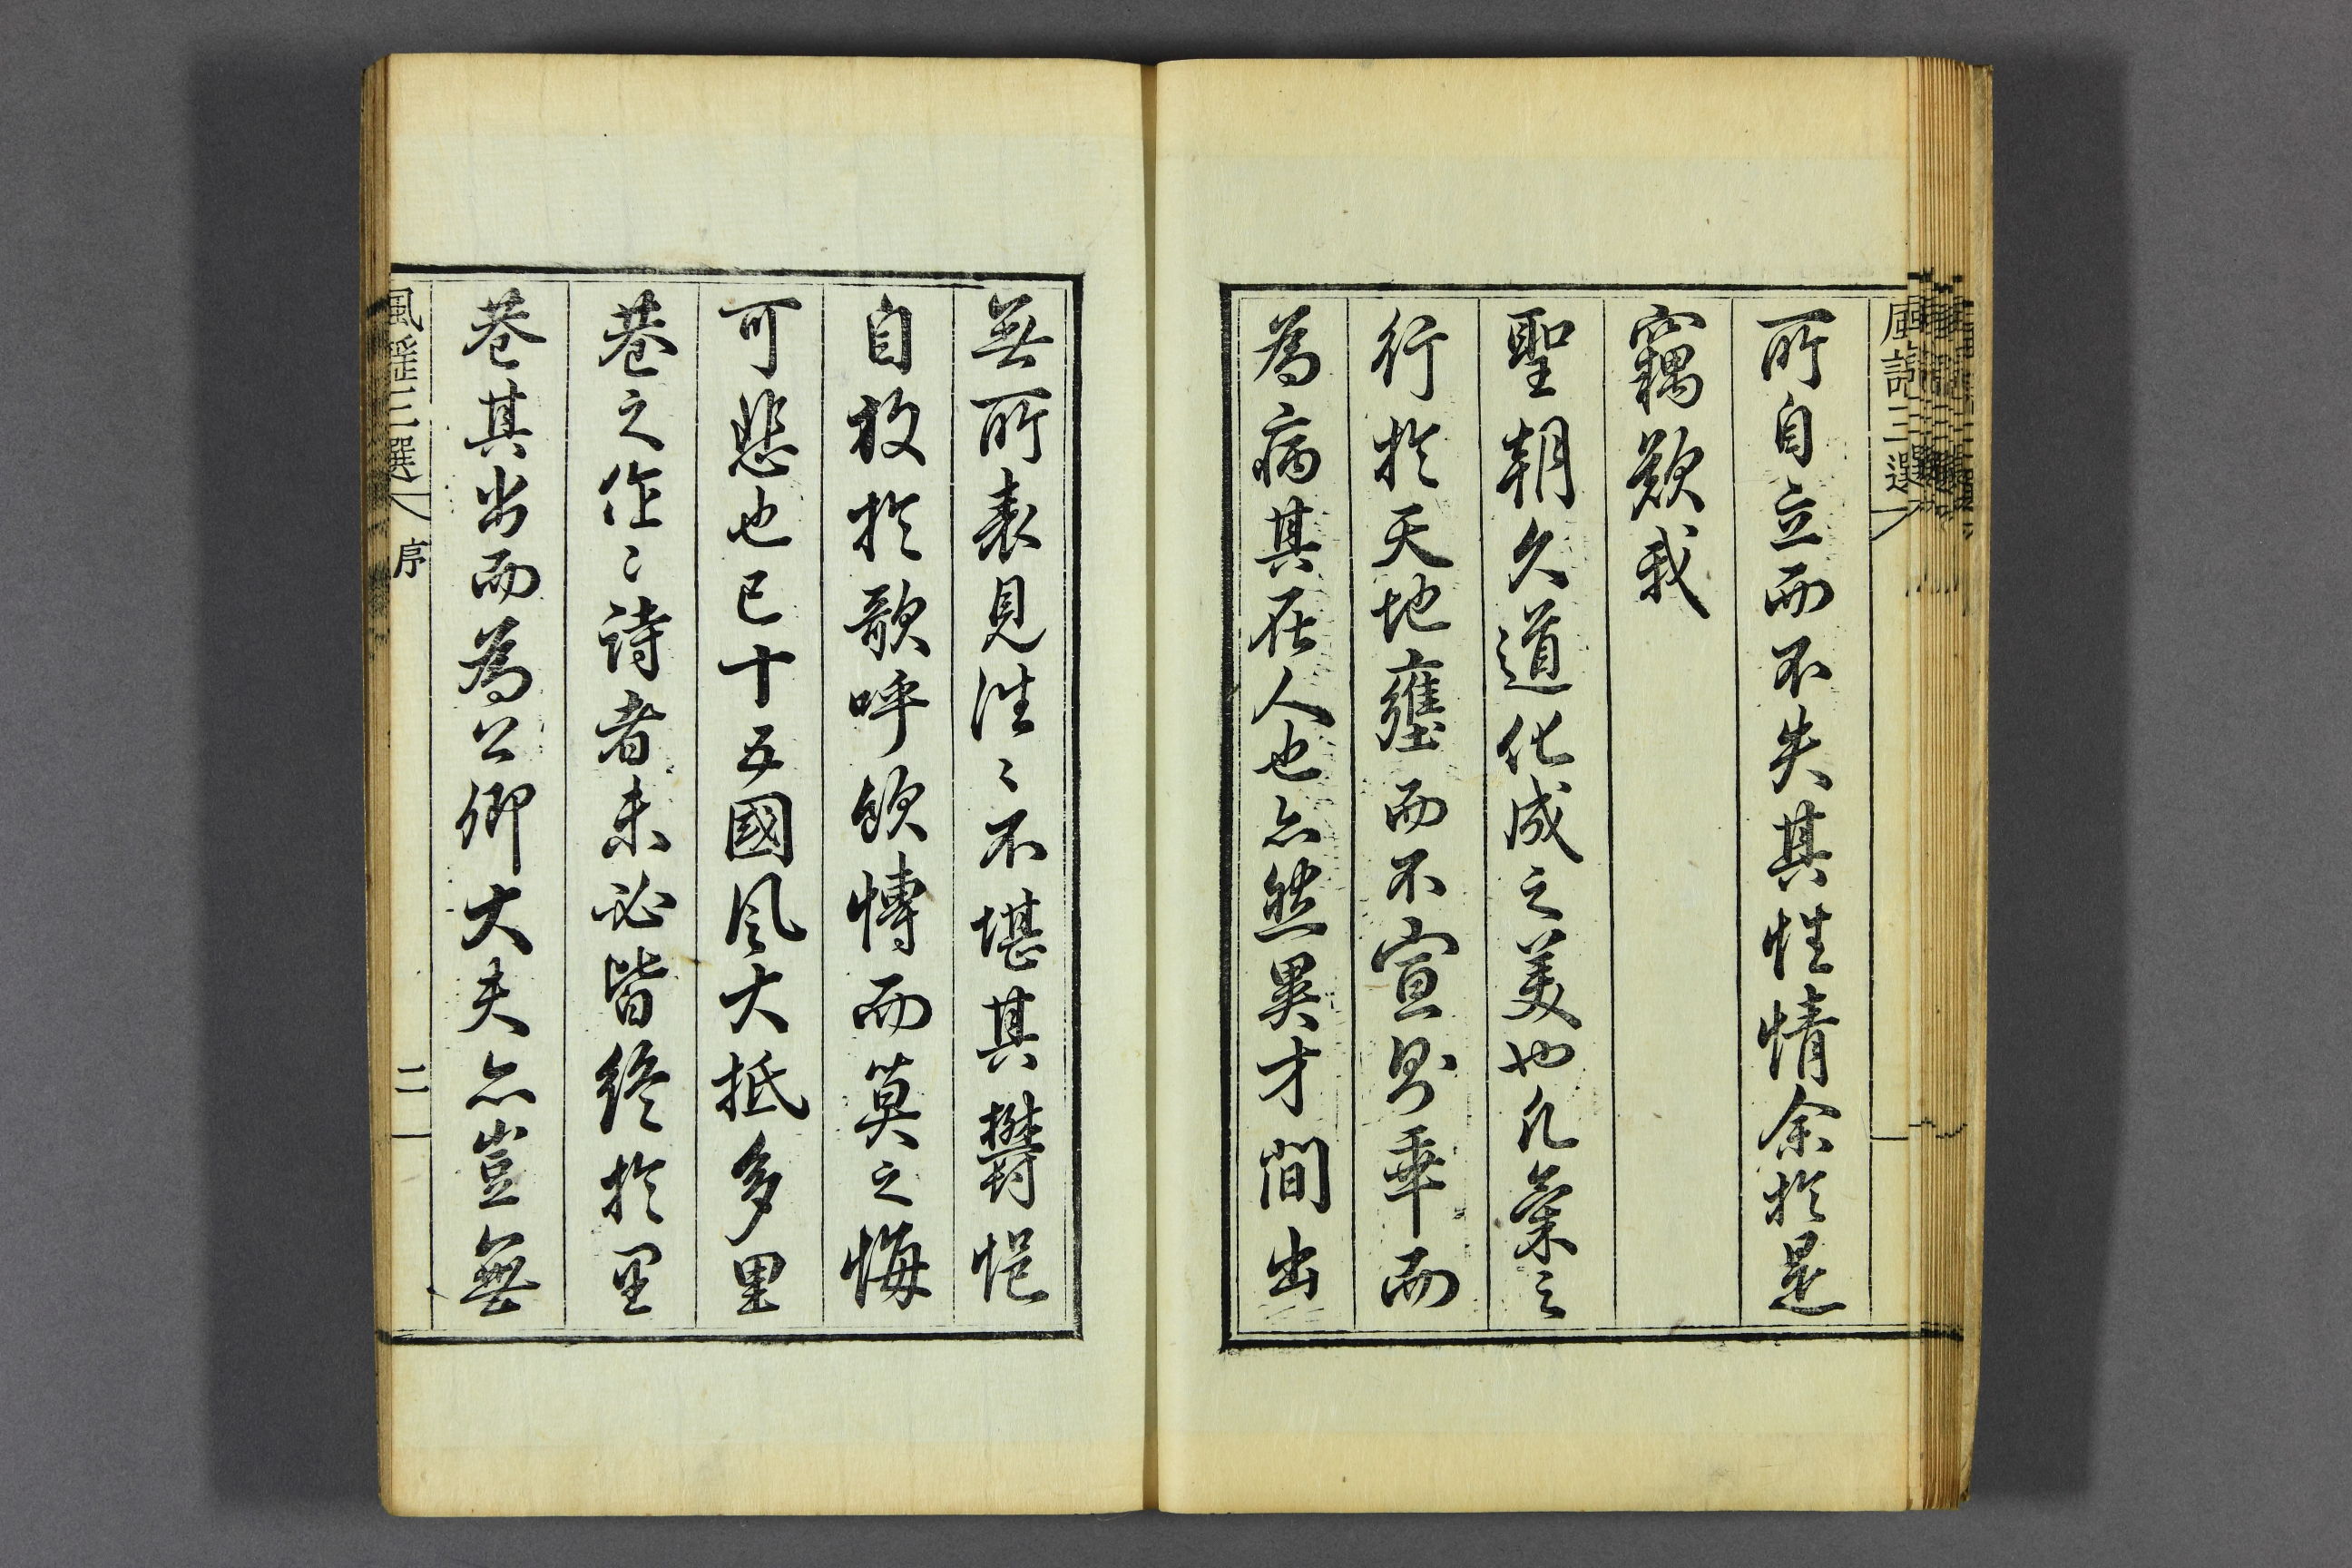 風謠三選
所自立而不失其性情余於是
竊歎我
聖朝久道化成之美也凡氣之
行於天地壅而不宣則乖而
為病其在人也亦然異才間出
無所表見往〻不堪其鬱悒
自放於歌呼飲博而莫之悔
可悲也已十五國風大抵多里
巷之作〻詩者未必皆終於里
巷其出而為公卿大夫亦豈無
風謠三選 序 二